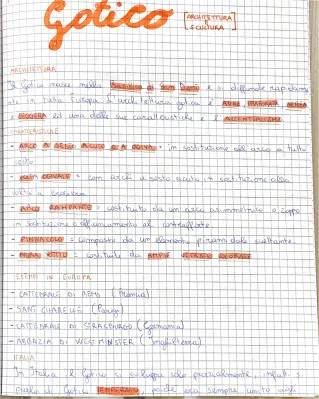 Gotico [ARCHITETTURA E SCULTURA]
ARCHITETTURA
Il Gotico nasce nella di Saint Denis e si diffonde rapidam
ente in tutta Europa. L'architettura gotica è
e ed una delle sue caratteristiche è l'
CARATTERISTICHE
- ARCO A SESTO ACUTO O A OGIVA = in sostituzione all'arco a tutto
sesto
- OGIVALE = con archi a sesto acuto in sostituzione alla
volta a crociera
- ARCO RAMPANTE = costituito da un arco asimmetrico o zoppo
in sostituzione o all'
- PINNACOLO = composto da un elemento piramidale svettante
- = costituite da AMPIE VETRATE COLORATE
ESEMPI IN EUROPA
- CATTEDRALE DI REIMS (Francia)
- SAINT CHAPELLE (Parigi)
- CATTEDRALE DI STRASBURGO (Germania)
- ABBAZIA DI WESTMINSTER (Inghilterra)
ITALIA
In Italia il Gotico si sviluppa solo parzialmente, infatti si
parla di Gotico TEMPERATO poiché era sempre unito agli